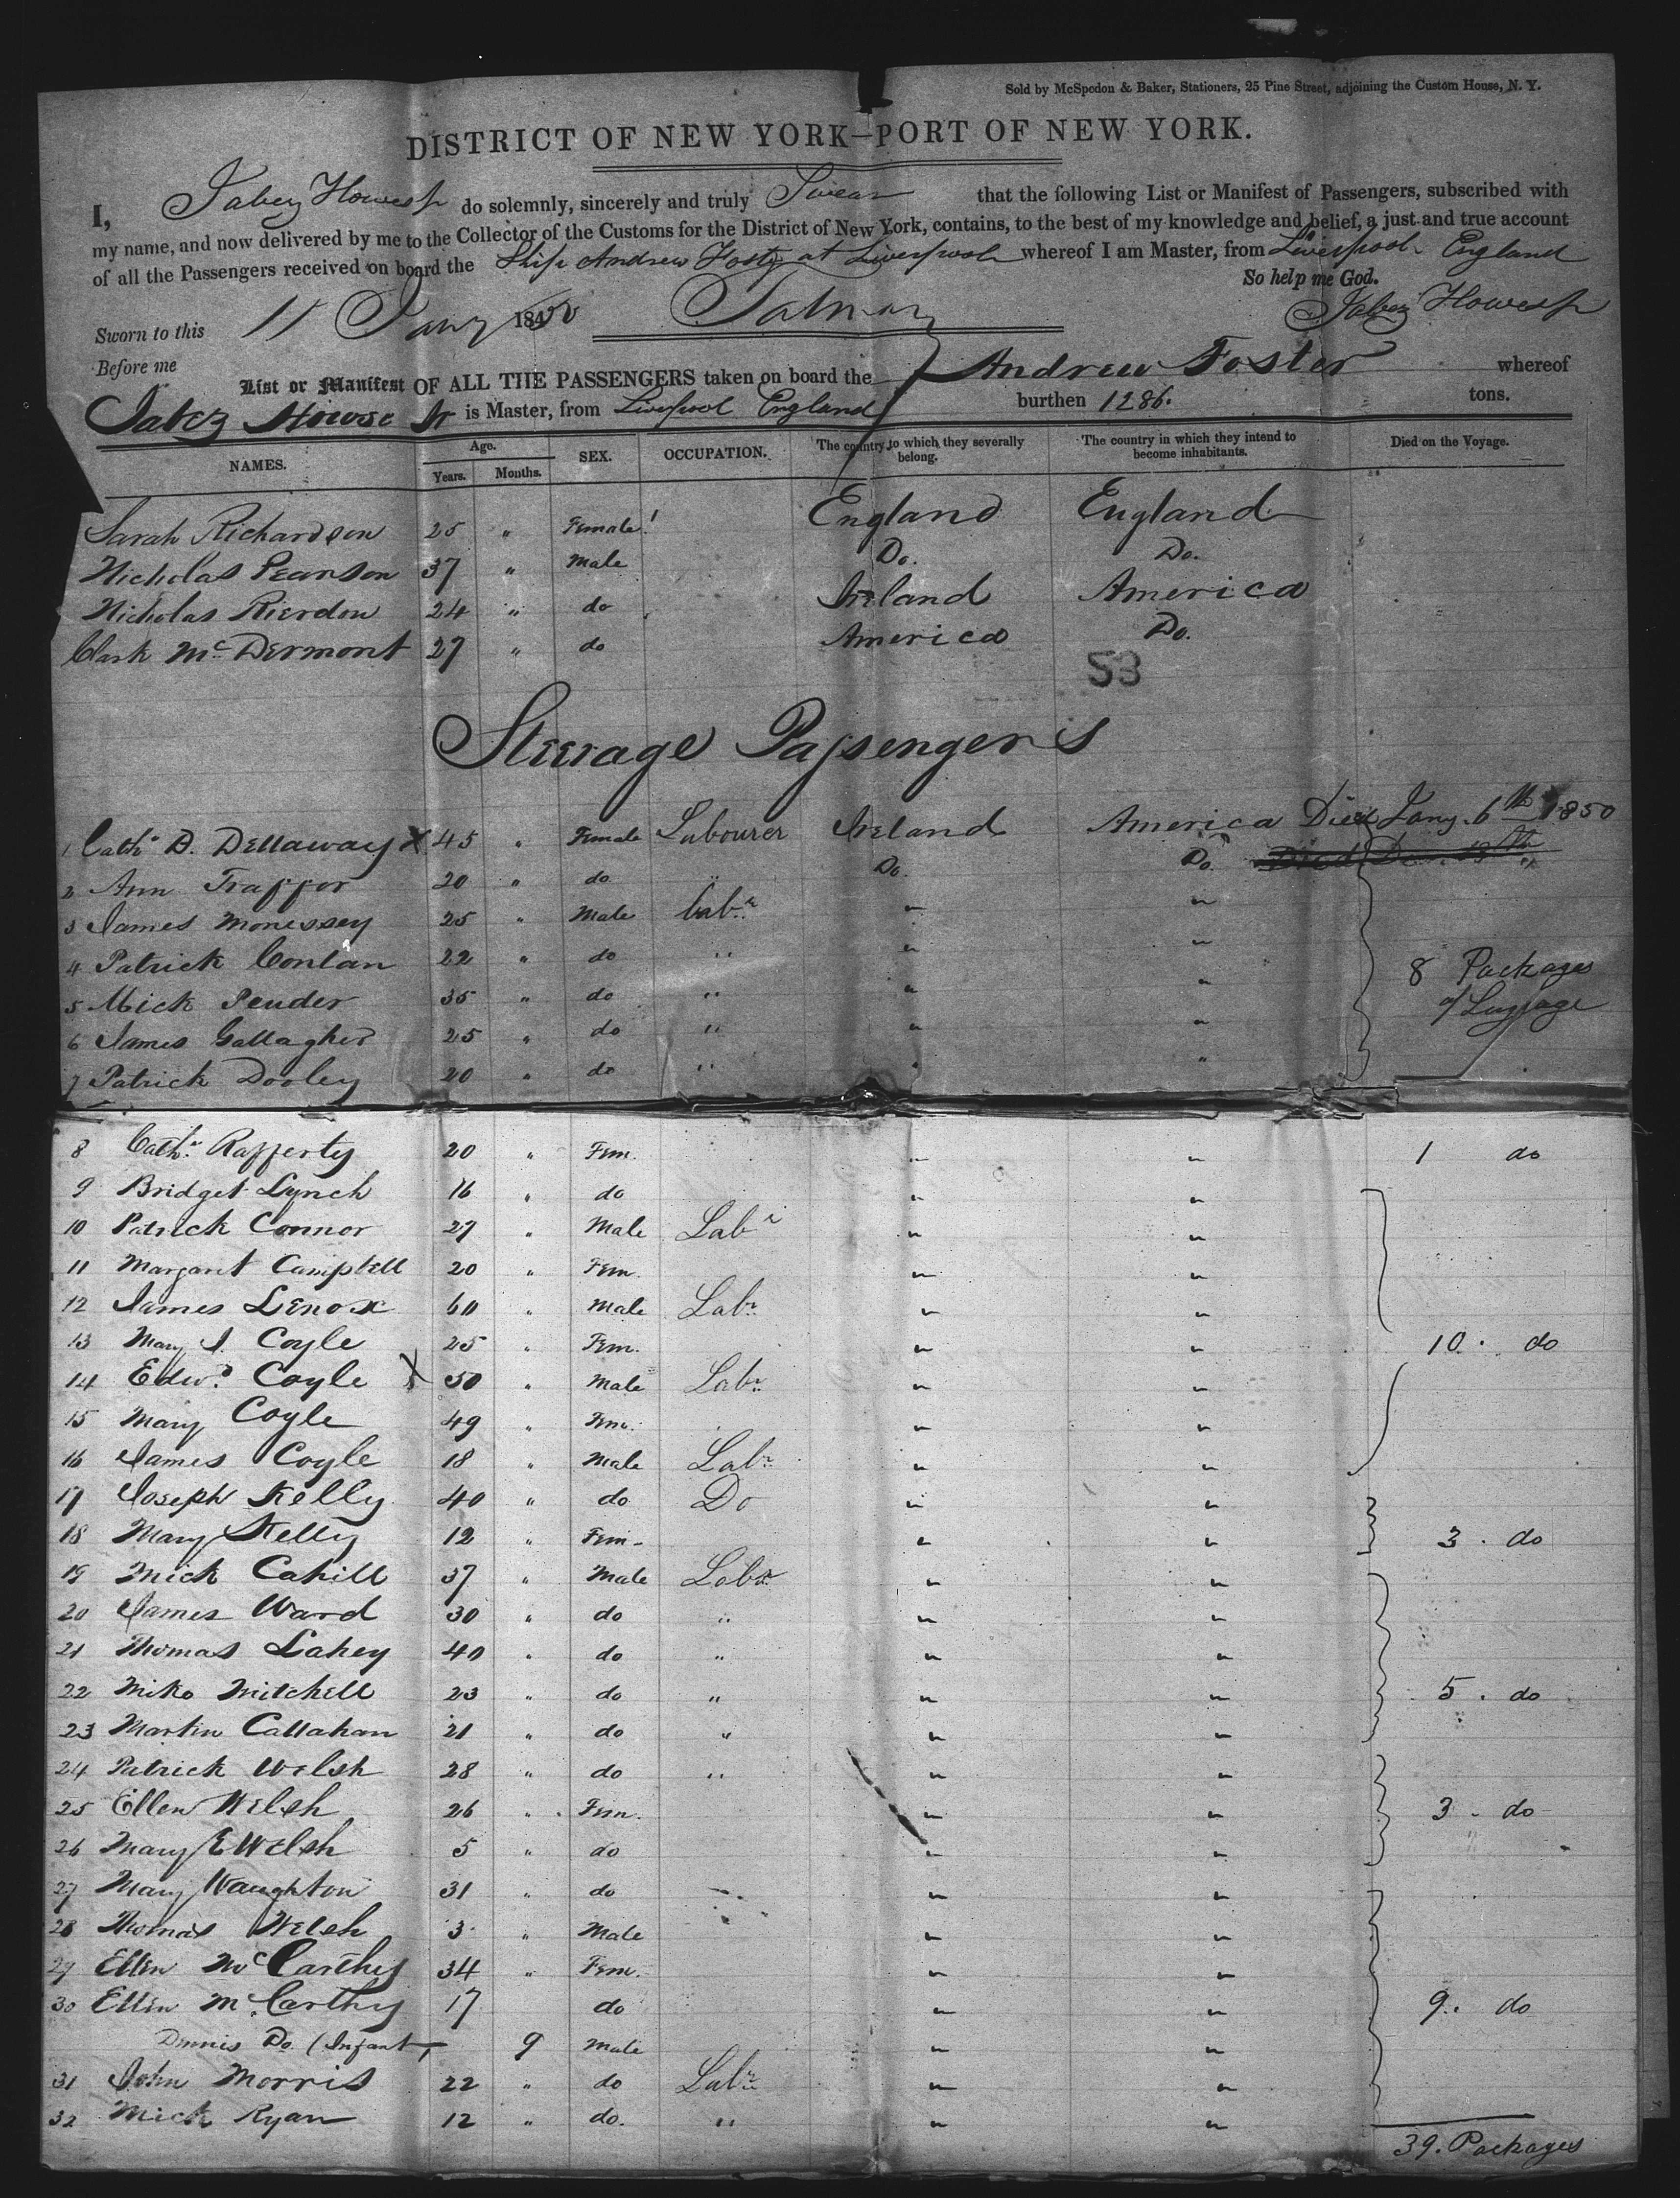 Sold by McSpedon & Baker, Stationers, 25 Pine Street, adjoining the Custom House, N. Y.
DISTRICT OF NEW YORK—PORT OF NEW YORK.
I, Jabez Howes Jr do solemnly, sincerely and truly Swear that the following List or Manifest of Passengers, subscribed with
my name, and now delivered by me to the Collector of the Customs for the District of New York, contains, to the best of my knowledge and belief, a just and true account
of all the Passengers received on board the Ship Andrew Foster at Liverpool whereof I am Master, from Liverpool England
So help me God.
Sworn to this 11 Jany 1850 Jabez Howes Jr
Before me
List or Manifest OF ALL THE PASSENGERS taken on board the Andrew Foster whereof
Jabez Howse Jr is Master, from Liverpool England burthen 1286. tons.
NAMES. Age. Years. Months. SEX. OCCUPATION. The country to which they severally belong. The country in which they intend to become inhabitants. Died on the Voyage.
Sarah Richardson 25 " Female England England
Nicholas Pearson 37 " Male Do. Do.
Nicholas Rierdon 24 " do Ireland America
Clark McDermont 27 " do America Do.
53
Steerage Passengers
1 Cath. D. Dellaway X 45 " Female Labourer Ireland America Died Jany. 6th 1850
2 Ann Traffor 20 " do " Do. Do. Died Dec. 13th
3 James Monessey 25 " Male Labr " "
4 Patrick Conlan 22 " do " " "
5 Mick Pender 35 " do " " " 8 Packages
6 James Gallagher 25 " do " " " of Luggage
7 Patrick Dooley 20 " do " " "
8 Cath. Rafferty 20 " Fem. " " 1 do
9 Bridget Lynch 16 " do " "
10 Patrick Connor 27 " Male Labr " "
11 Margaret Campbell 20 " Fem. " "
12 James Lenox 60 " Male Labr " "
13 Mary J. Coyle 25 " Fem. " " 10. do
14 Edwd. Coyle X 50 " Male Labr " "
15 Mary Coyle 49 " Fem. " "
16 James Coyle 18 " Male Labr " "
17 Joseph Kelly 40 " do Do " "
18 Mary Kelly 12 " Fem. " " 3. do
19 Mick Cahill 37 " Male Labr " "
20 James Ward 30 " do " " "
21 Thomas Lahey 40 " do " " "
22 Mike Mitchell 23 " do " " " 5. do
23 Martin Callahan 21 " do " " "
24 Patrick Welsh 28 " do " " "
25 Ellen Welsh 26 " Fem. " " 3. do
26 Mary E Welsh 5 " do " "
27 Mary Naughton 31 " do " "
28 Thomas Welsh 3 " Male " "
29 Ellen McCarthy 34 " Fem. " "
30 Ellen McCarthy 17 do " " 9. do
Dennis Do. (Infant) 9 Male " "
31 John Morris 22 " do Labr " "
32 Mick Ryan 12 " do. " " "
39. Packages